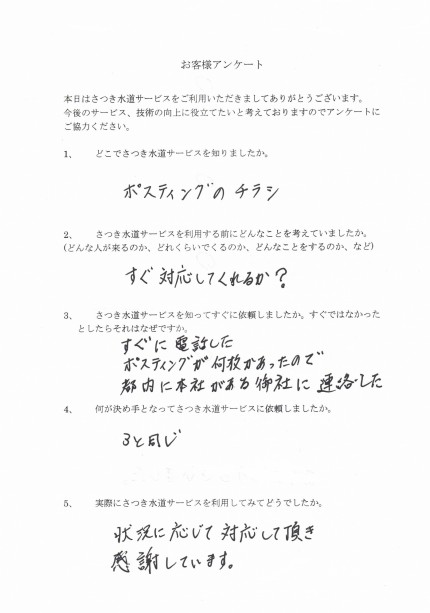 お客様アンケート
本日はさつき水道サービスをご利用いただきましてありがとうございます。
今後のサービス、技術の向上に役立てたいと考えておりますのでアンケートに
ご協力ください。
1、 どこでさつき水道サービスを知りましたか。
ポスティングのチラシ
2、 さつき水道サービスを利用する前にどんなことを考えていましたか。
(どんな人が来るのか、どれくらいでくるのか、どんなことをするのか、など)
すぐ対応してくれるか?
3、 さつき水道サービスを知ってすぐに依頼しましたか。すぐではなかった
としたらそれはなぜですか。
すぐに電話した
ポスティングが何枚かあったので
都内に本社がある御社に連絡した
4、 何が決め手となってさつき水道サービスに依頼しましたか。
3と同じ
5、 実際にさつき水道サービスを利用してみてどうでしたか。
状況に応じて対応して頂き
感謝しています。